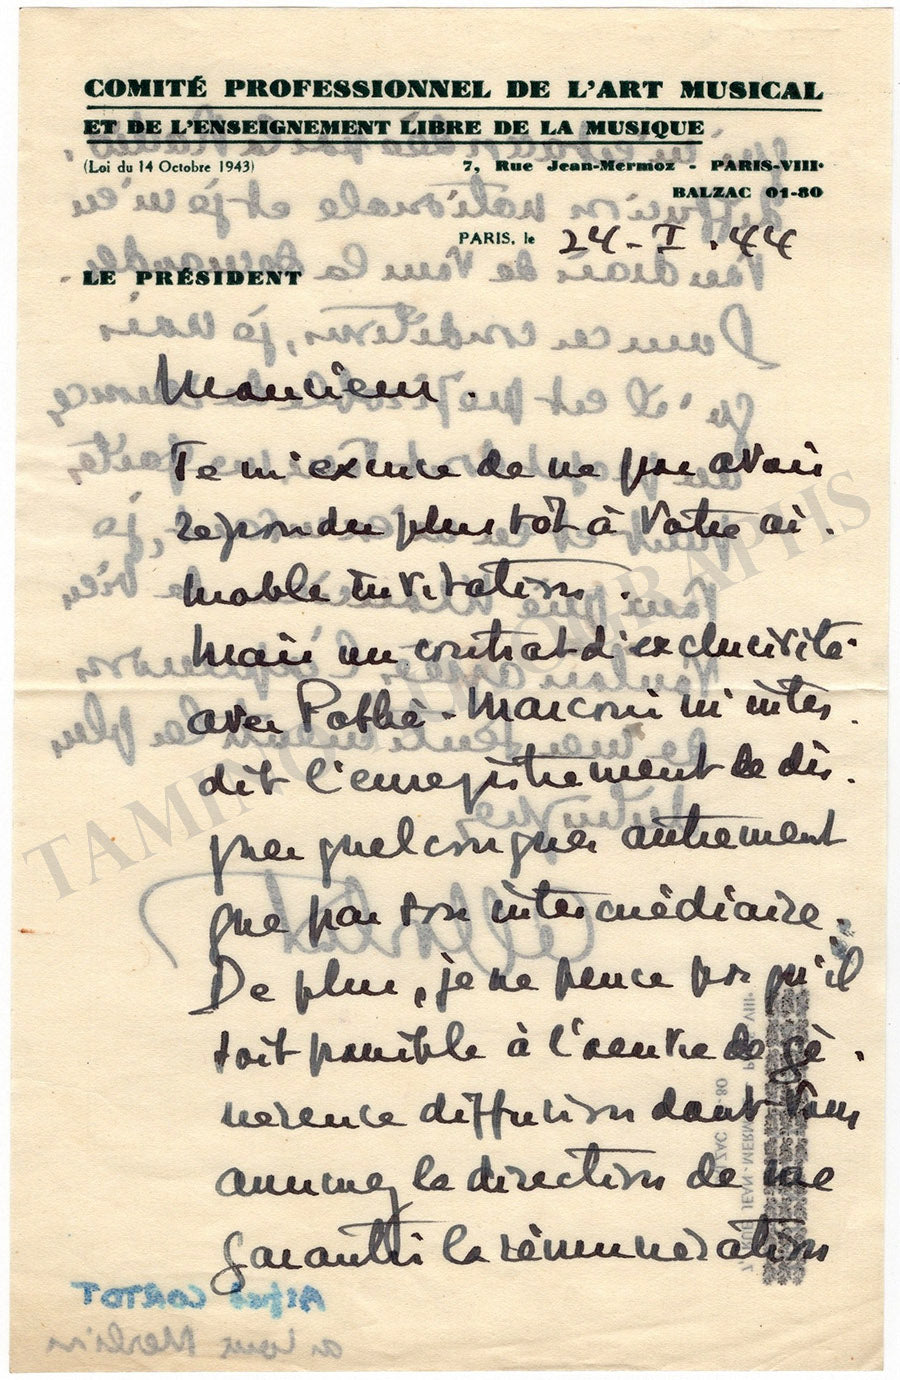 COMITÉ PROFESSIONNEL DE L'ART MUSICAL
ET DE L'ENSEIGNEMENT LIBRE DE LA MUSIQUE
(Loi du 14 Octobre 1943)
7, Rue Jean-Mermoz - PARIS-VIII•
BALZAC 01-80
PARIS, le 24-I.44
LE PRÉSIDENT
Monsieur.
Je m'excuse de ne pas avoir
repondu plus tôt à votre ai.
mable invitation.
Mais un contrat d'exclusivité
avec Pathé-Marconi m'inter.
dit l'enregistrement de dis.
ques quelconques autrement
que par son intermédiaire.
De plus, je ne pense pas qu'il
soit possible à l'oeuvre de gé.
nereuse diffusion dont vous
assumez la direction de me
garantir la rémunération
TAMINO AUTOGRAPHS
Alfred CORTOT
a Louis Merlin